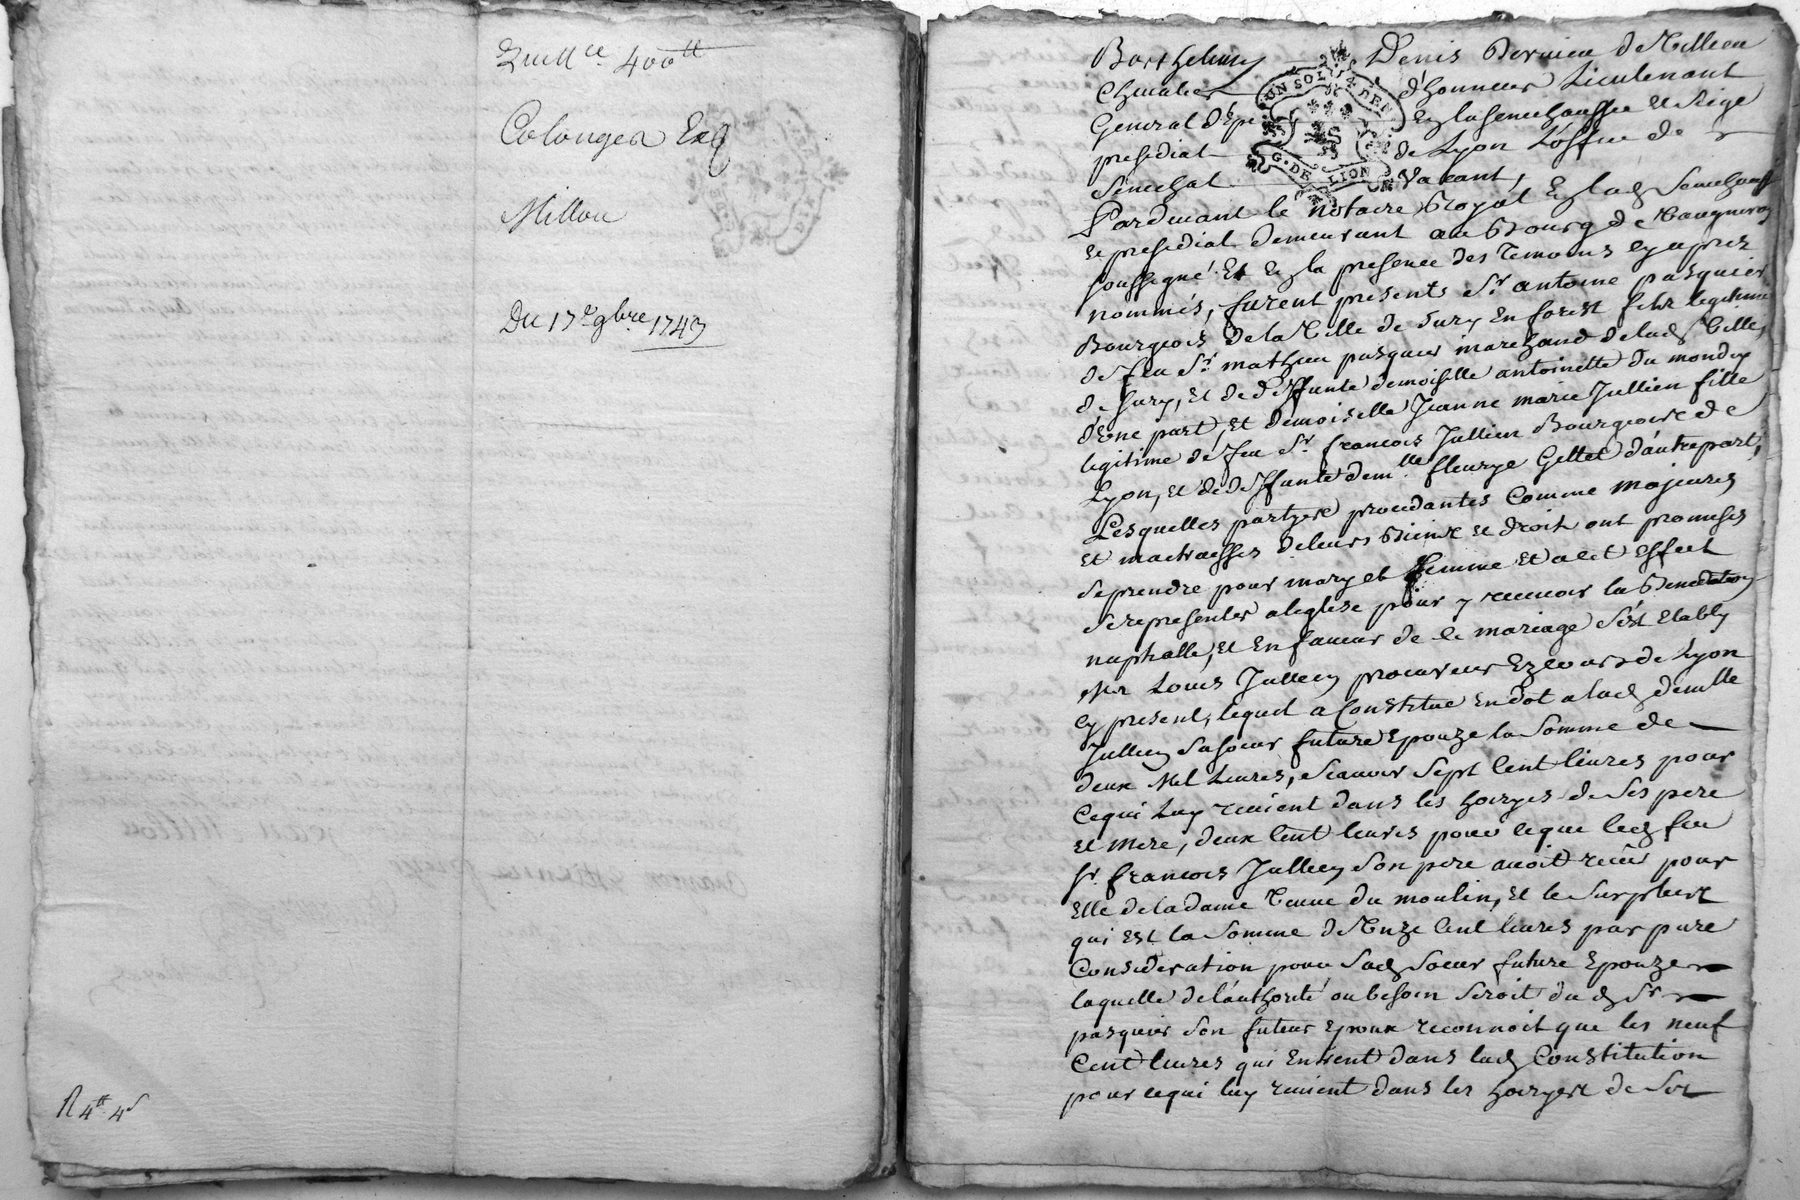 Quitt.ce 400lt
Colonges Ez
Millou
Du 17e 9bre 1749
R 4lt 4s
Barthelemy Denis Dervieu de Villieu
Chevalier d'honneur Lieutenant
General d'Epé En la senechaussee et siege
presidial de Lyon L'office de
Senechal Vacant,
UN SOL 4 DEN
G. DE LION
Pardevant le notaire Royal En lad Senechaussée
et presidial demeurant au Bourg de Vaugneray
soussigné Et En la presence des temoins cy apres
nommés, furent presents Sr antoine pasquier
Bourgeois de la Ville de Sury En forest fils legitime
de feu Sr mathieu pasquier marchand de lad Ville
de Sury, et de deffunte demoiselle antoinette du mondey
d'une part, et demoiselle Jeanne marie Jullien fille
legitime de feu Sr francois Jullien Bourgeois de
Lyon, et de deffunte demlle fleurye Gellet d'autre part,
Lesquelles partyes procedantes Comme majeures
et maitresses de leurs Biens et droits ont promises
se prendre pour mary et femme Et a cet Effect
se representer a leglise pour y recevoir la Benediction
nuptialle, et En faveur de ce mariage s'est Etably
Mr Louis Jullien procureur Ez cours de Lyon
cy present, lequel a Constitué En dot a lad demlle
Jullien sa soeur future Epouze la Somme de
deux Mil Livres, scavoir Sept Cent livres pour
ce qui luy revient dans les hoiryes de Ses pere
et mere, deux Cent livres pour ce que led feu
Sr francois Jullien son pere avoit receu pour
Elle de la dame Veuve du moulin, et le Surplus
qui Est la Somme de Unze Cent livres par pure
Consideration pour Sad Soeur future Epouze
laquelle de l'authorité ou besoin Seroit du d Sr
pasquier Son futeur Epoux reconnoit que les neuf
Cent livres qui Entrent dans lad Constitution
pour ce qui luy revient dans les hoiryes de Ses